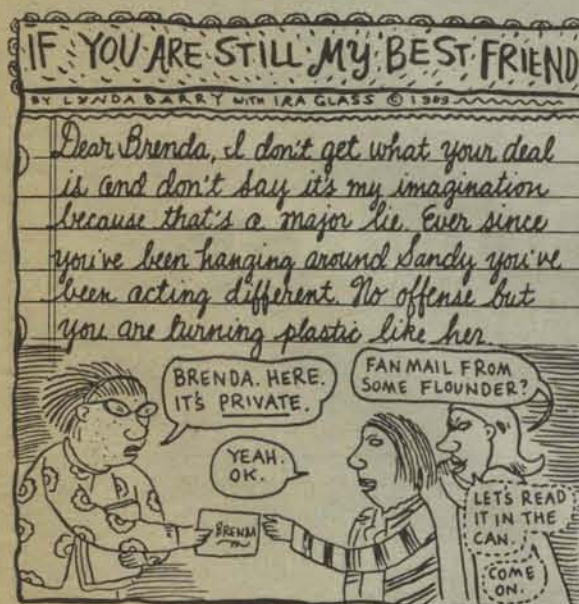 IF YOU ARE STILL MY BEST FRIEND
BY LYNDA BARRY WITH IRA GLASS © 1989
Dear Brenda, I don't get what your deal
is and don't say it's my imagination
because that's a major lie. Ever since
you've been hanging around Sandy you've
been acting different. No offense but
you are turning plastic like her.
BRENDA. HERE.
IT'S PRIVATE.
FAN MAIL FROM
SOME FLOUNDER?
YEAH.
OK.
BRENDA
LET'S READ
IT IN THE
CAN.
COME
ON.